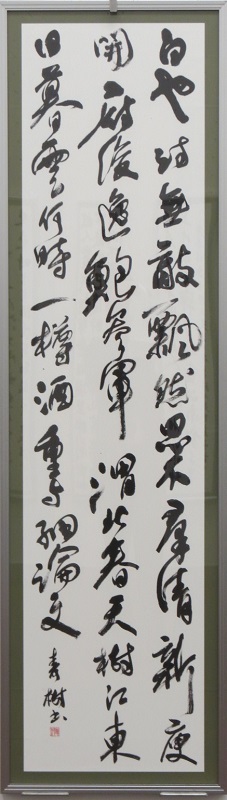 白也詩無敵飄然思不群清新庾
開府俊逸鮑参軍渭北春天樹江東
日暮雲何時一樽酒重与細論文
青樹書